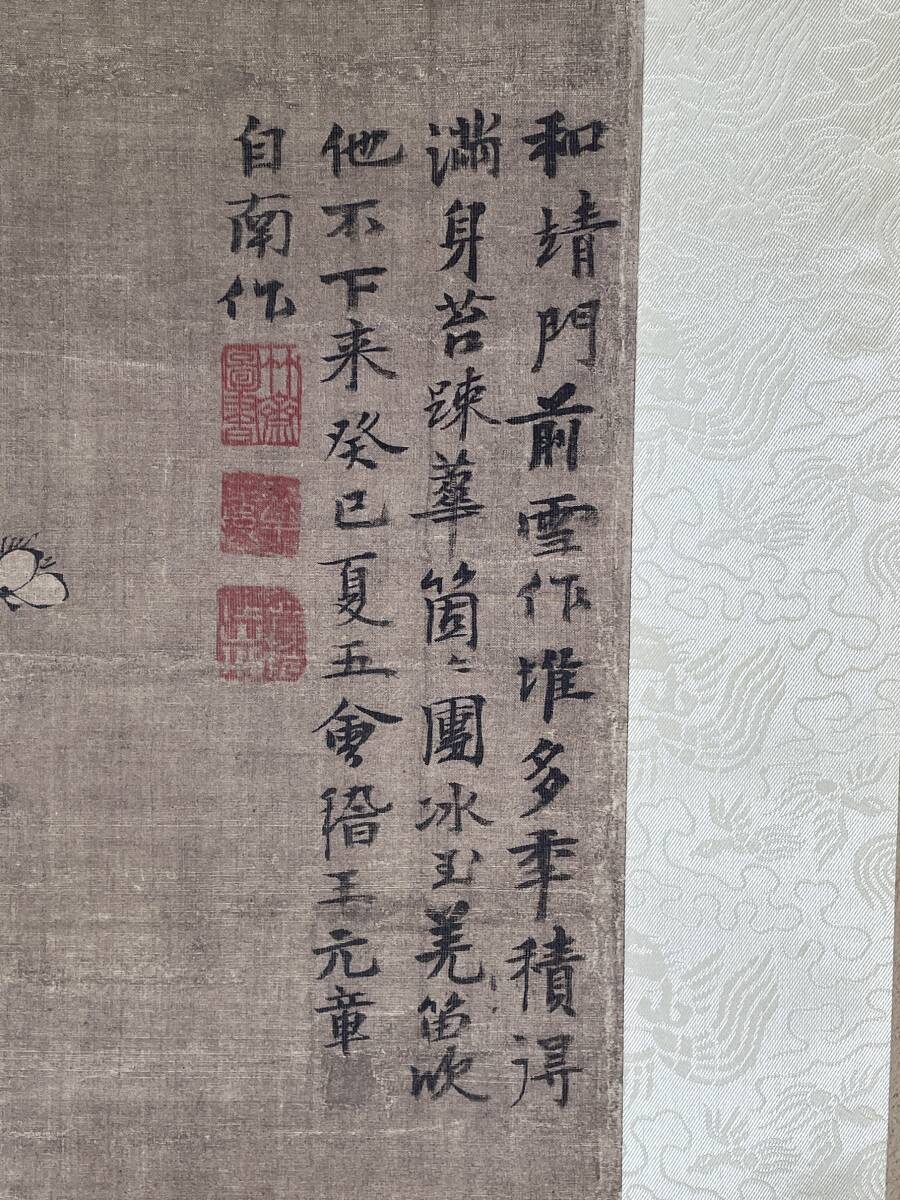 和靖門前雪作堆多秊積得
滿身苔踈蕚箇〻團冰玉羌笛吹
他不下来癸巳夏五會稽王元章
自南作
竹齋圖書